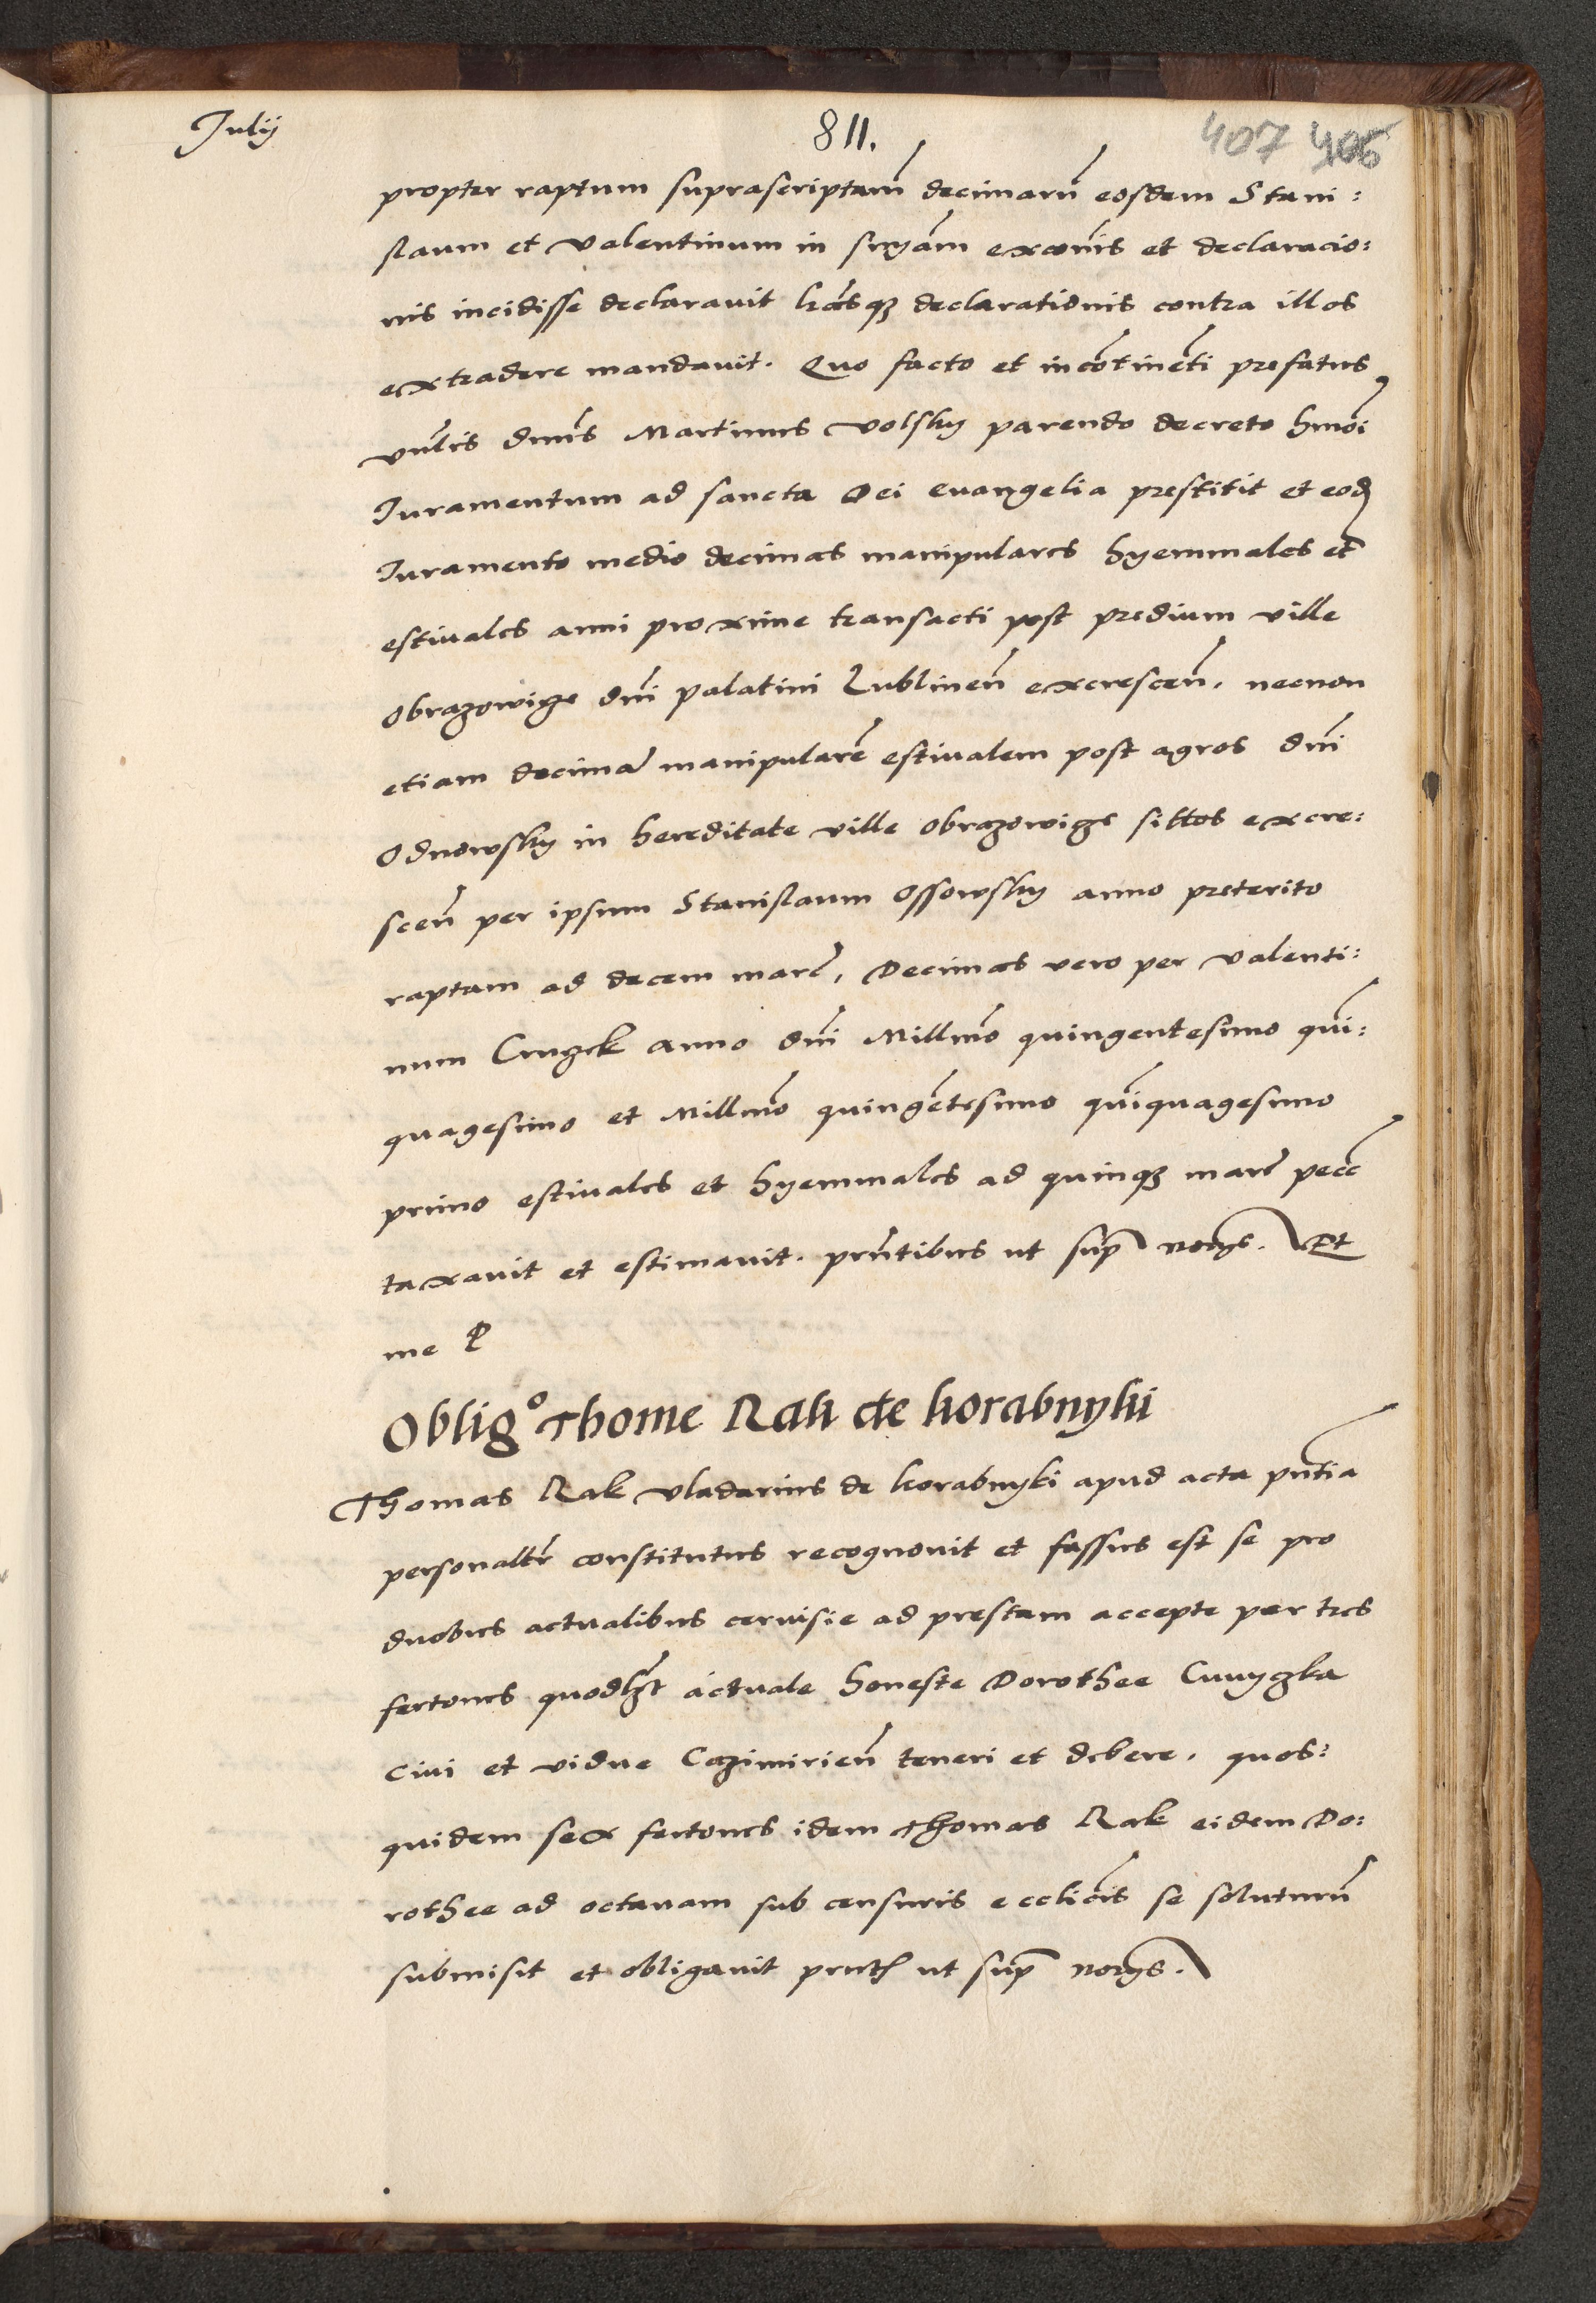 Julij
811.
407 406
propter raptum suprascriptarũ decimarũ eosdem Stani:
slaum et Valentinum in snỹam excoĩs et declaracio:
nis incidisse declarauit lrãsqz declarationis contra illos
extradere mandauit. Quo facto et incõtinẽti prefatus
vñlis dñus Martinus Volsky parendo decreto hmõi
Juramentum ad sancta Dei euangelia prestitit et eod
Juramento medio decimas manipulares hyemmales et
estiuales anni proxime transacti post predium ville
Obrazowize dñi palatini Lublineñ excresceñ. necnon
etiam decimã manipularẽ estiualem post agros dñi
Odnowsky in hereditate ville Obrazowize sittos excre:
sceñ per ipsum Stanislaum Ossowsky anno preterito
raptam ad decem marc̃, Decimas vero per Valenti:
num Cruzek anno dñi Millm̃o quingentesimo quĩ:
quagesimo et Millm̃o quingẽtesimo quĩquagesimo
primo estiuales et hyemmales ad quinqz marc̃ pecc̃
taxauit et estimauit. prñtibus ut sup norys. Et
me P
Oblig° Thome Rak de korabnyki
Thomas Rak vladarius de korabnyki apud acta pñtia
personalltr̃ constitutus recognouit et fassus est se pro
duobus actualibus ceruisie ad prestam accepte per tres
fertones quodlz̃t actuale honeste Dorothee Cuuyzka
ciui et vidue Cazimirieñ teneri et debere. quos:
quidem sex fertones idem Thomas Rak eidem Do:
rothee ad octauam sub censuris ecclĩcis se soluturũ
submisit et obligauit prnt ut sup norys.